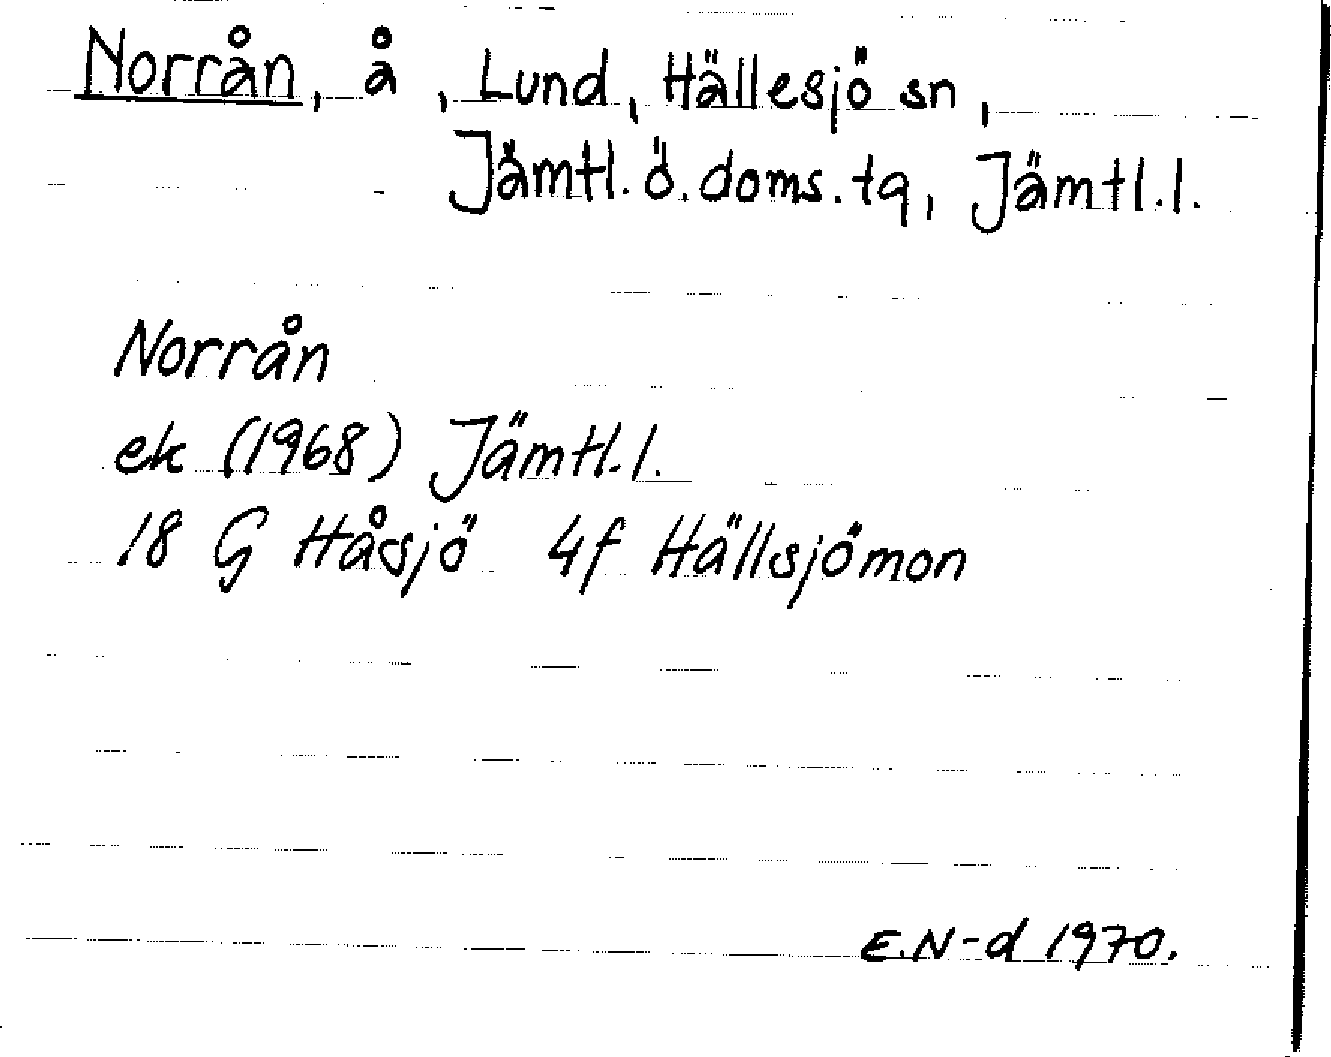 Norrån, å, Lund, Hällesjö sn,
Jämtl. ö. doms. tg, Jämtl. l.
Norrån
ek (1968) Jämtl. l.
18 G Håsjö 4f Hällsjömon
E.N-d 1970.